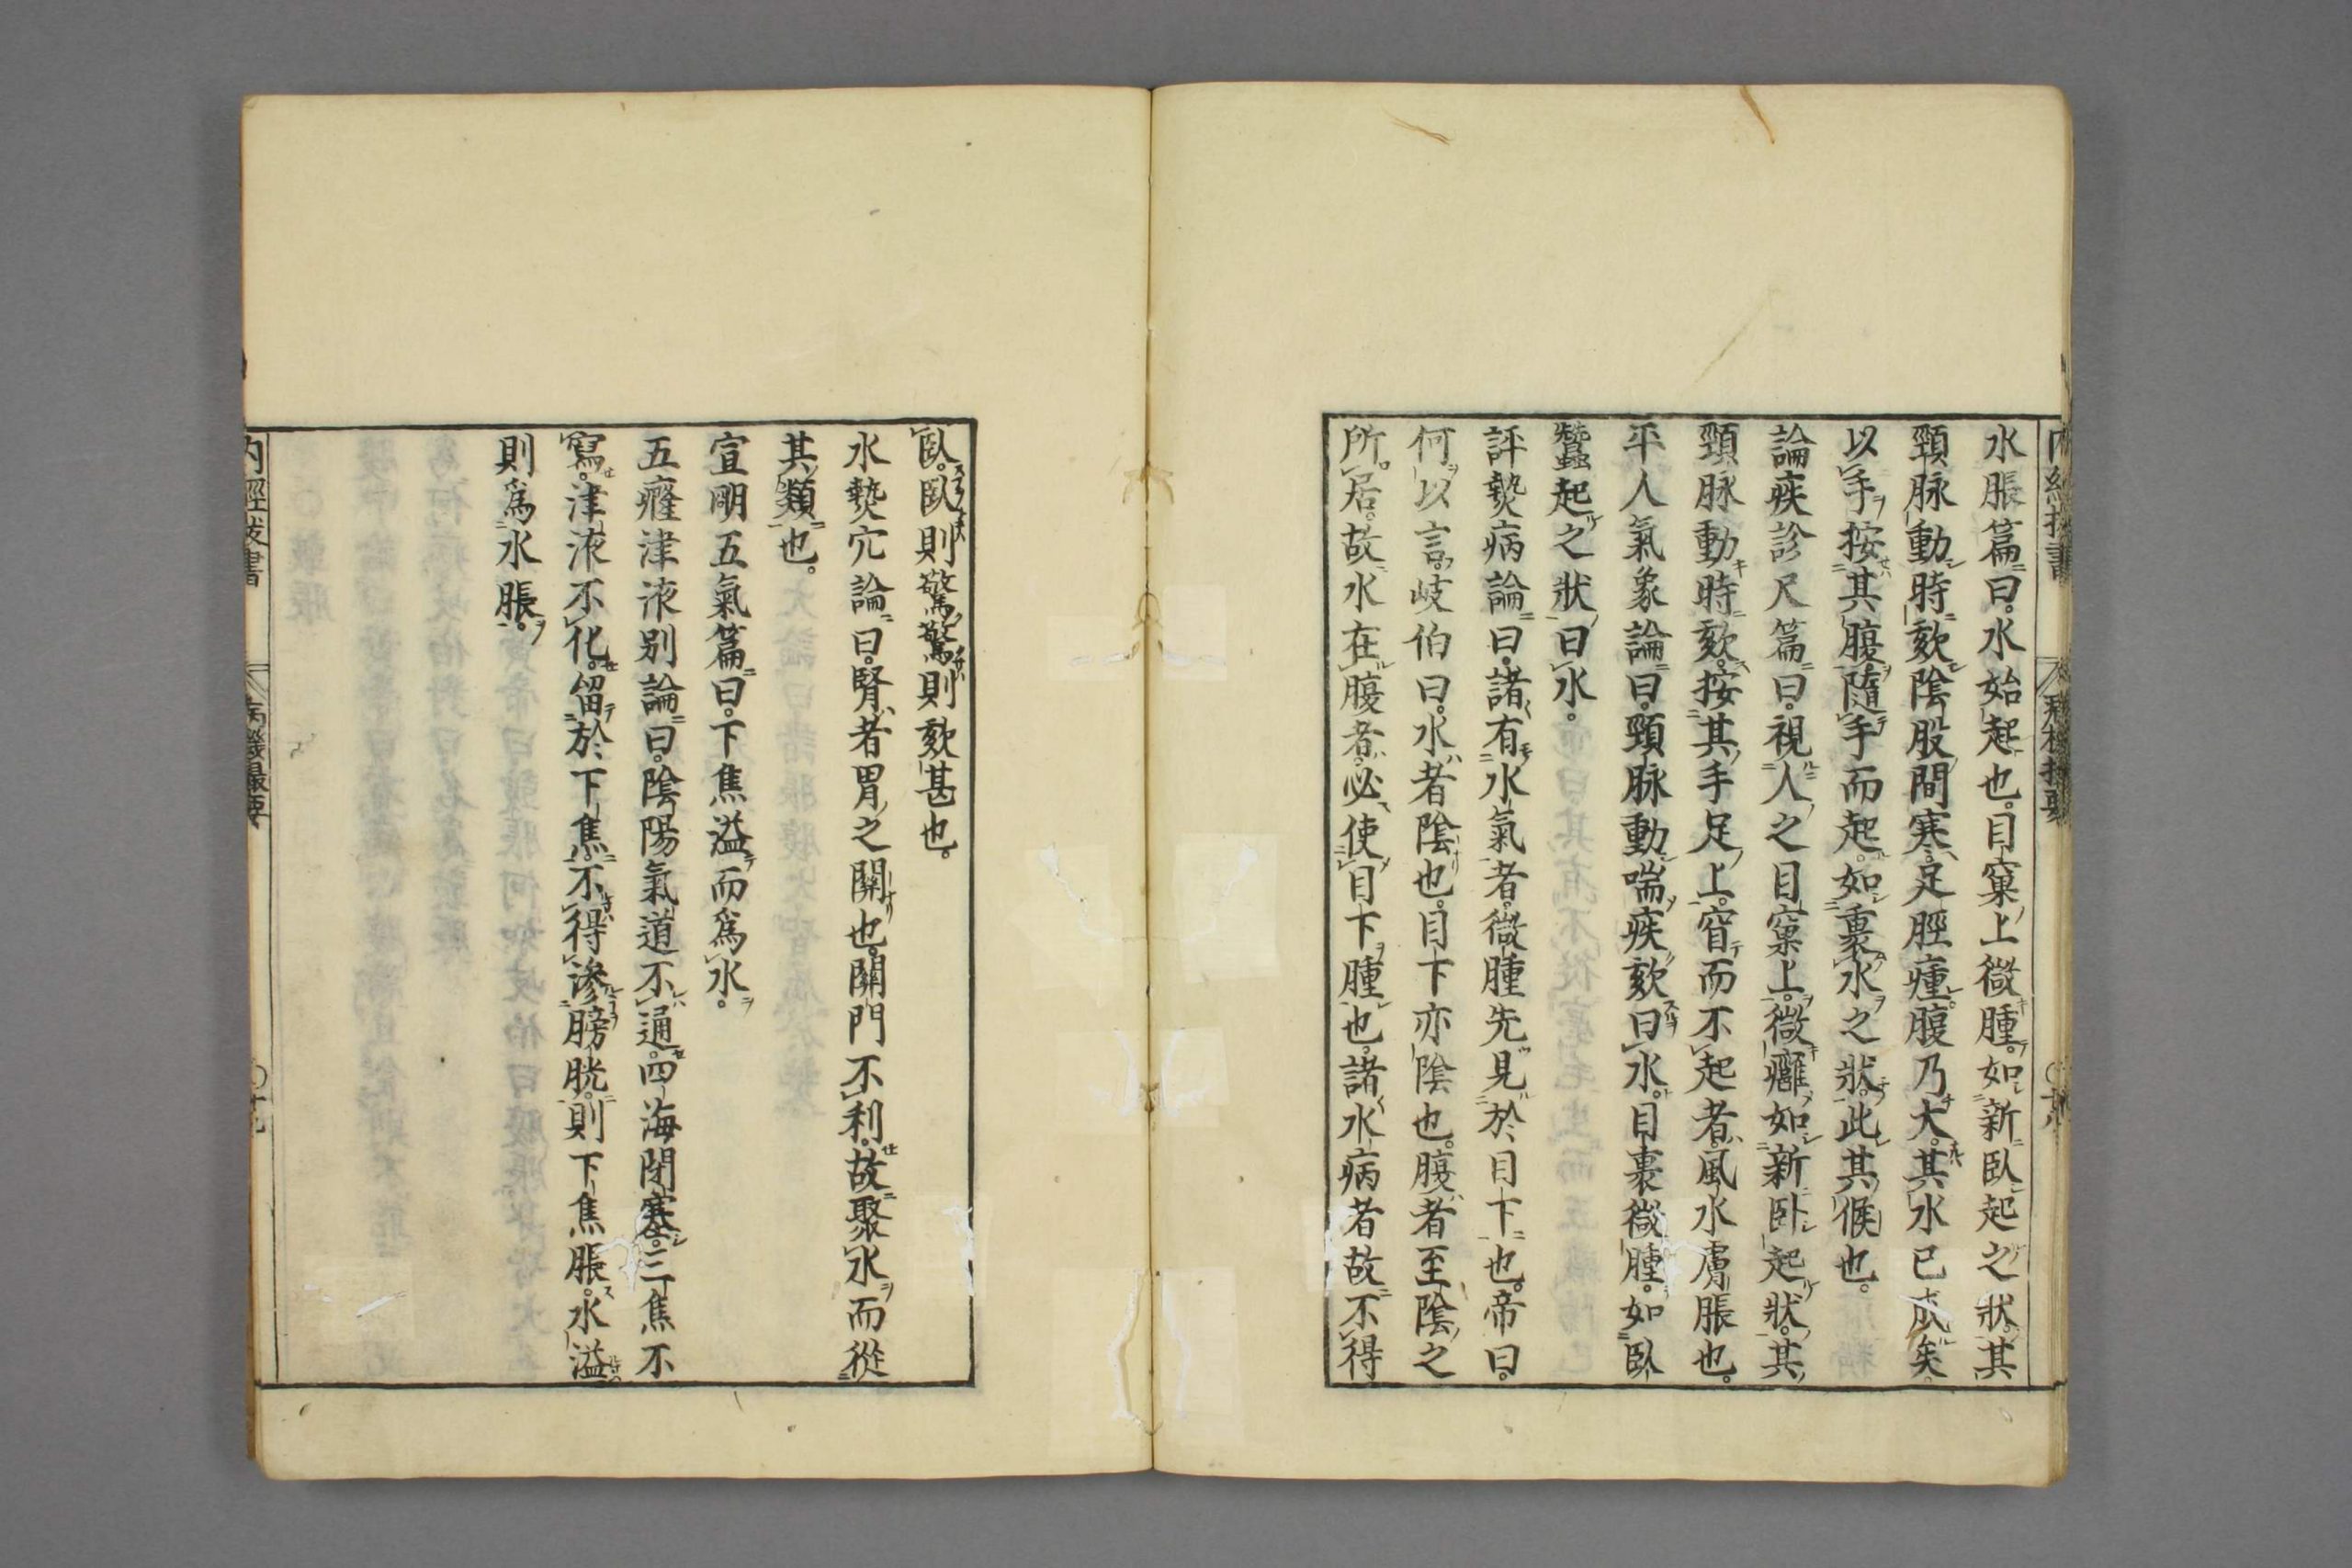 水脹篇曰。水始起也。目窠上微腫。如新臥起之狀。其
頸脉動。時欬。陰股間寒。足脛瘇。腹乃大。其水已成矣。
以手按其腹。隨手而起。如裹水之狀。此其候也。
論疾診尺篇曰。視人之目窠上。微癰。如新卧起狀。其
頸脉動。時欬。按其手足上。窅而不起者。風水膚脹也。
平人氣象論曰。頸脉動喘疾欬曰水。目裹微腫。如臥
蠶起之狀曰水。
評熱病論曰。諸有水氣者。微腫先見於目下也。帝曰。
何以言。岐伯曰。水者陰也。目下亦陰也。腹者至陰之
所居。故水在腹者。必使目下腫也。諸水病者故不得
臥。臥則驚。驚則欬甚也。
水熱穴論曰。腎者胃之關也。關門不利。故聚水而從
其類也。
宣明五氣篇曰。下焦溢而爲水。
五癃津液别論曰。陰陽氣道不通。四海閉塞。三焦不
寫。津液不化。留於下焦。不得滲膀胱。則下焦脹。水溢
則爲水脹。
病機撮要